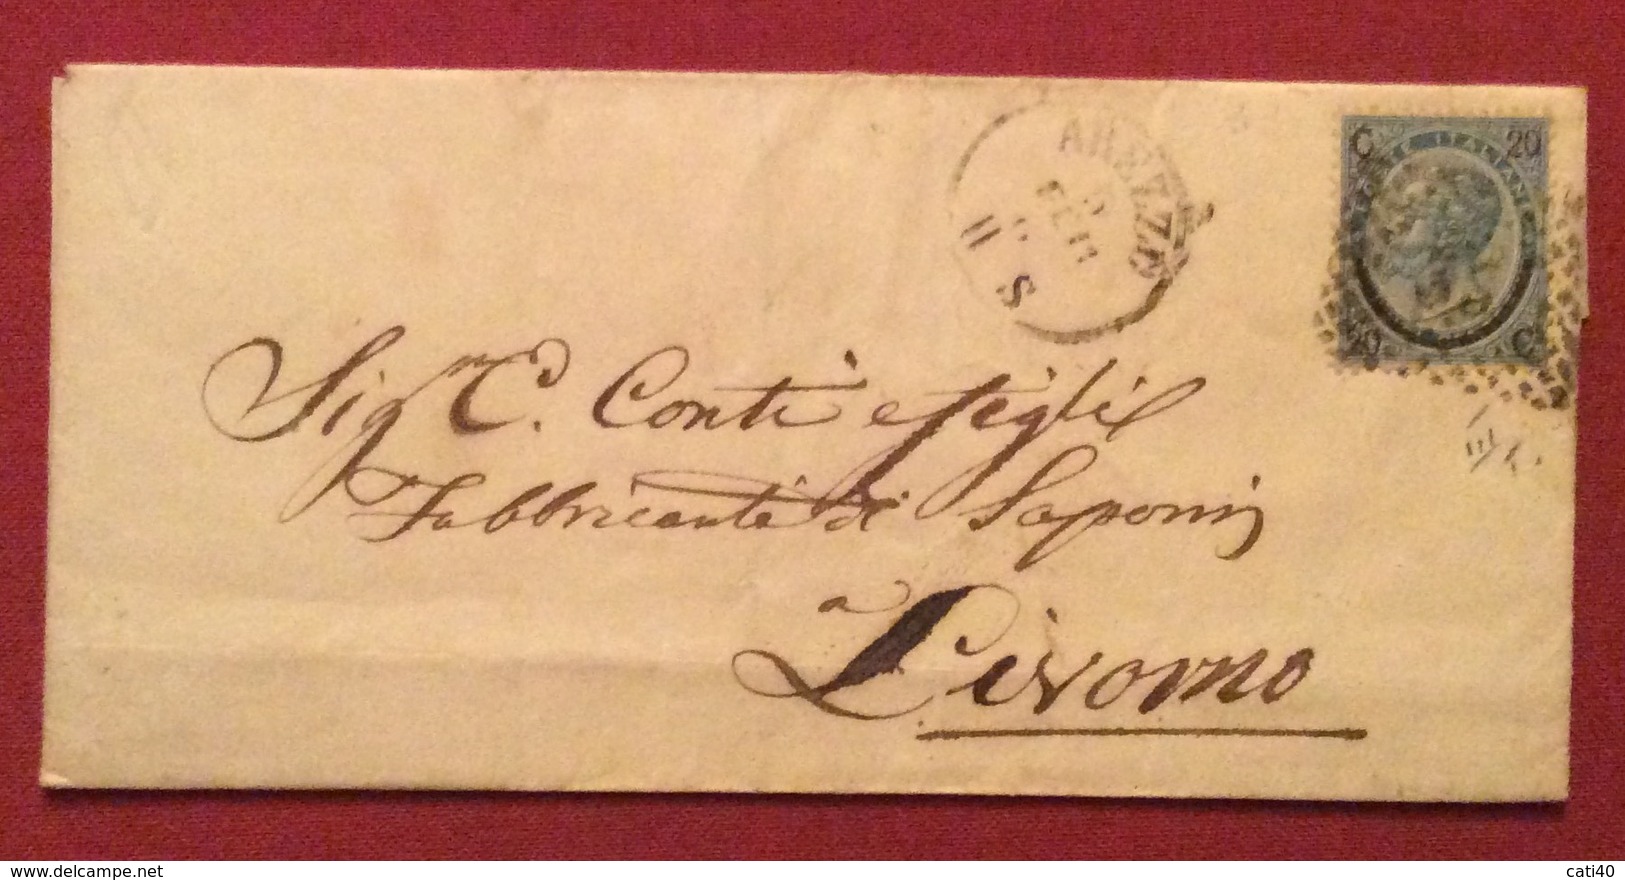 AREZZO
FEB
11 S
C 20
POSTE ITALIANE
20 C
Sig.ri C. Conti e figli
Fabbricanti di Saponi
a
Livorno
cati40